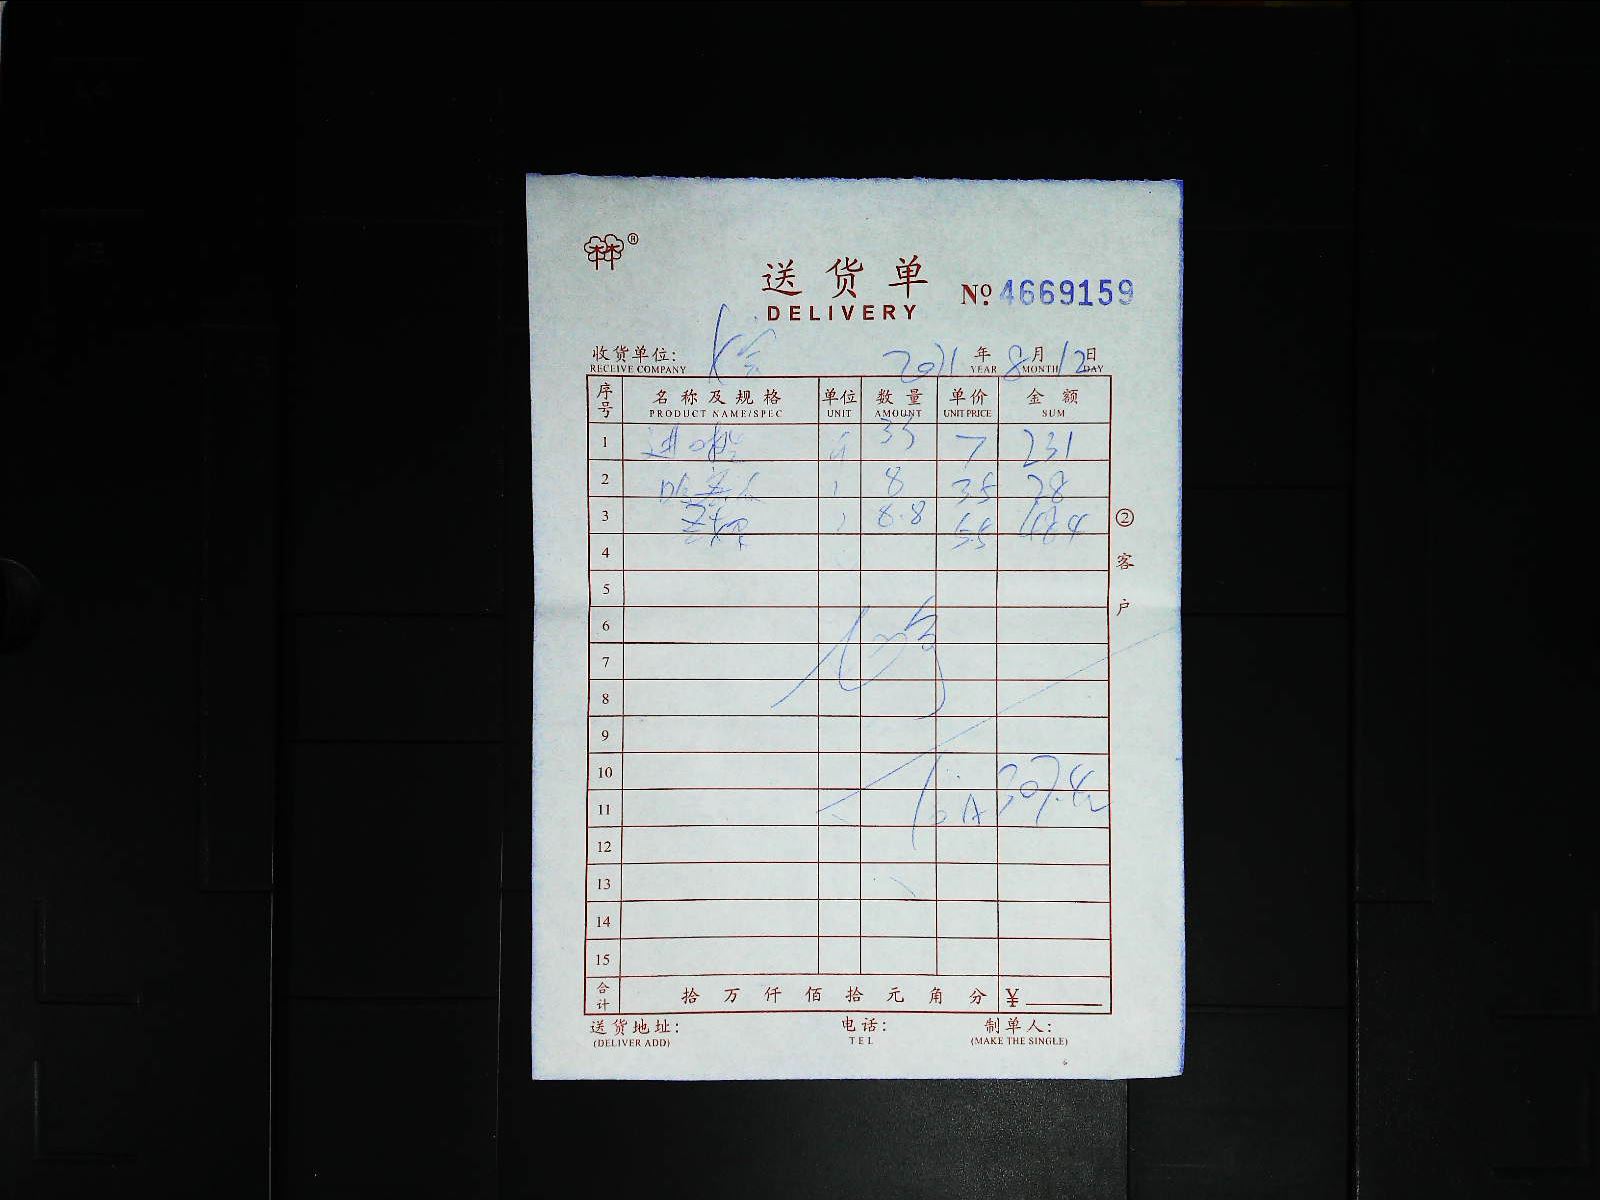 ®
送货单
DELIVERY
Nº 4669159
收货单位: 2021 年 8 月 12 日
RECEIVE COMPANY YEAR MONTH DAY
序号 名称及规格 单位 数量 单价 金额
PRODUCT NAME/SPEC UNIT AMOUNT UNIT PRICE SUM
1 进口 33 7 231
2 哈 8 35 28
3 8.8 5.5 48.4
4
5
6
7
8
9
10 307.4
11
12
13
14
15
合计 拾 万 仟 佰 拾 元 角 分 ¥
送货地址: 电话: 制单人:
(DELIVER ADD) TEL (MAKE THE SINGLE)
② 客户